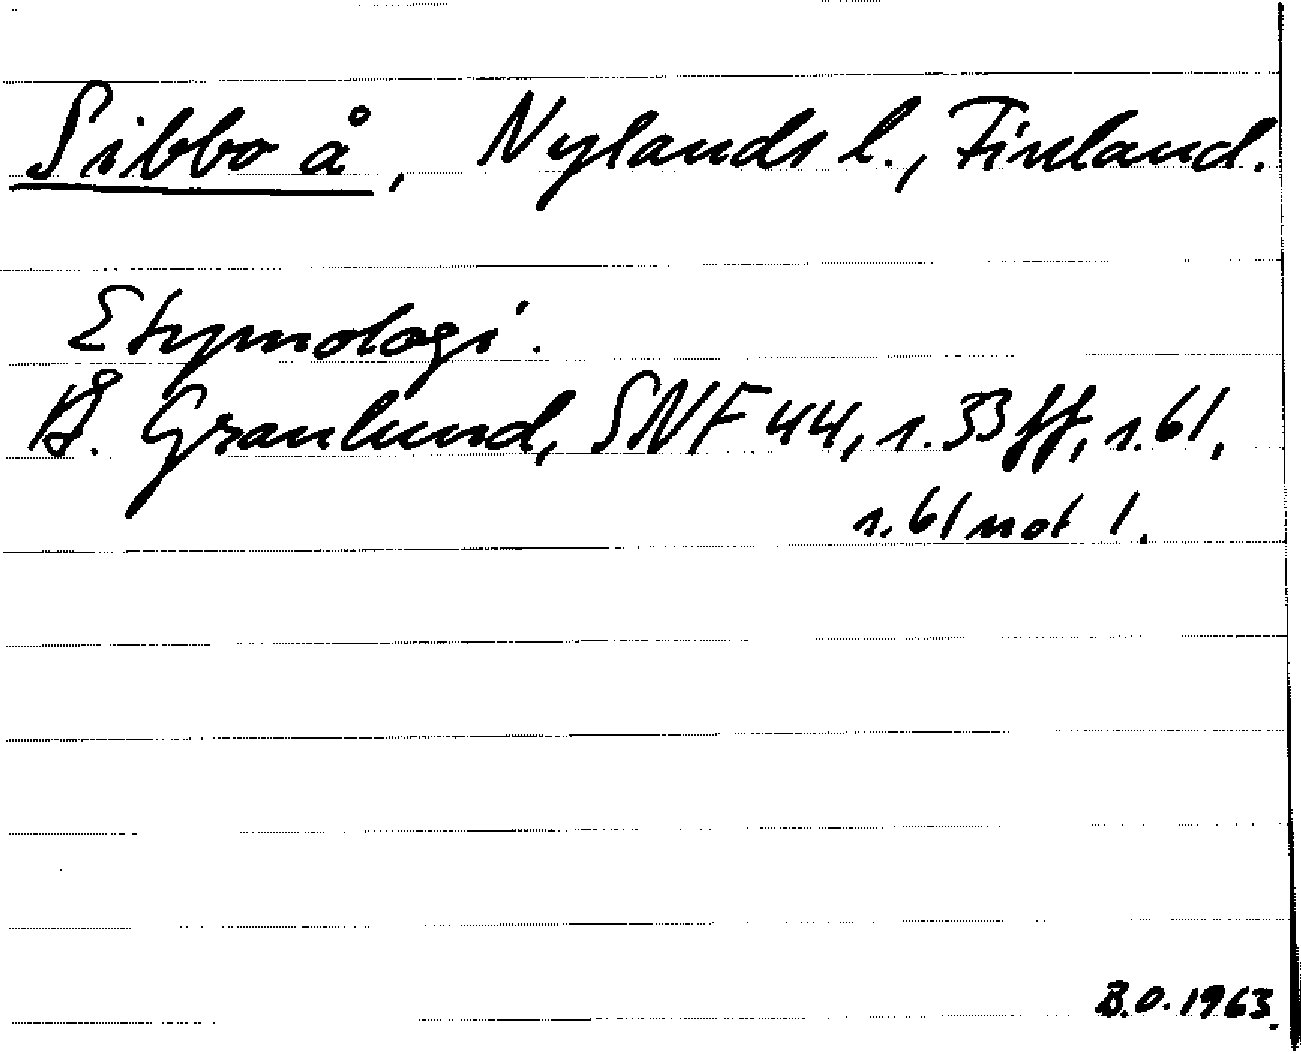 Sibbo å, Nylands l., Finland.
Etymologi.
Å. Granlund, SNF 44, s. 33 ff, s. 61,
s. 61 not 1.
B.O. 1963.